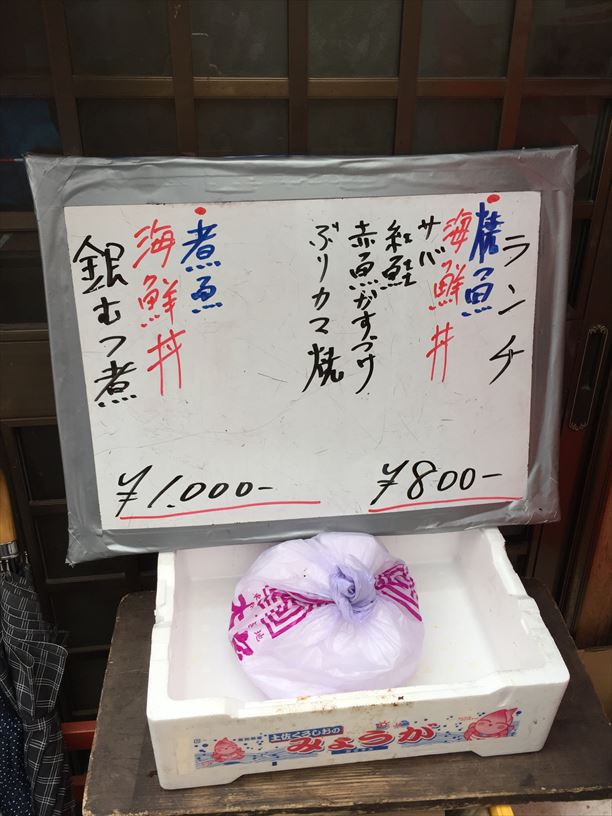 ランチ
焼魚
海鮮丼
サバ
紅鮭
赤魚かすづけ
ぶりカマ焼
¥800-
煮魚
海鮮丼
銀むつ煮
¥1.000-
土佐くろしおの
みょうが